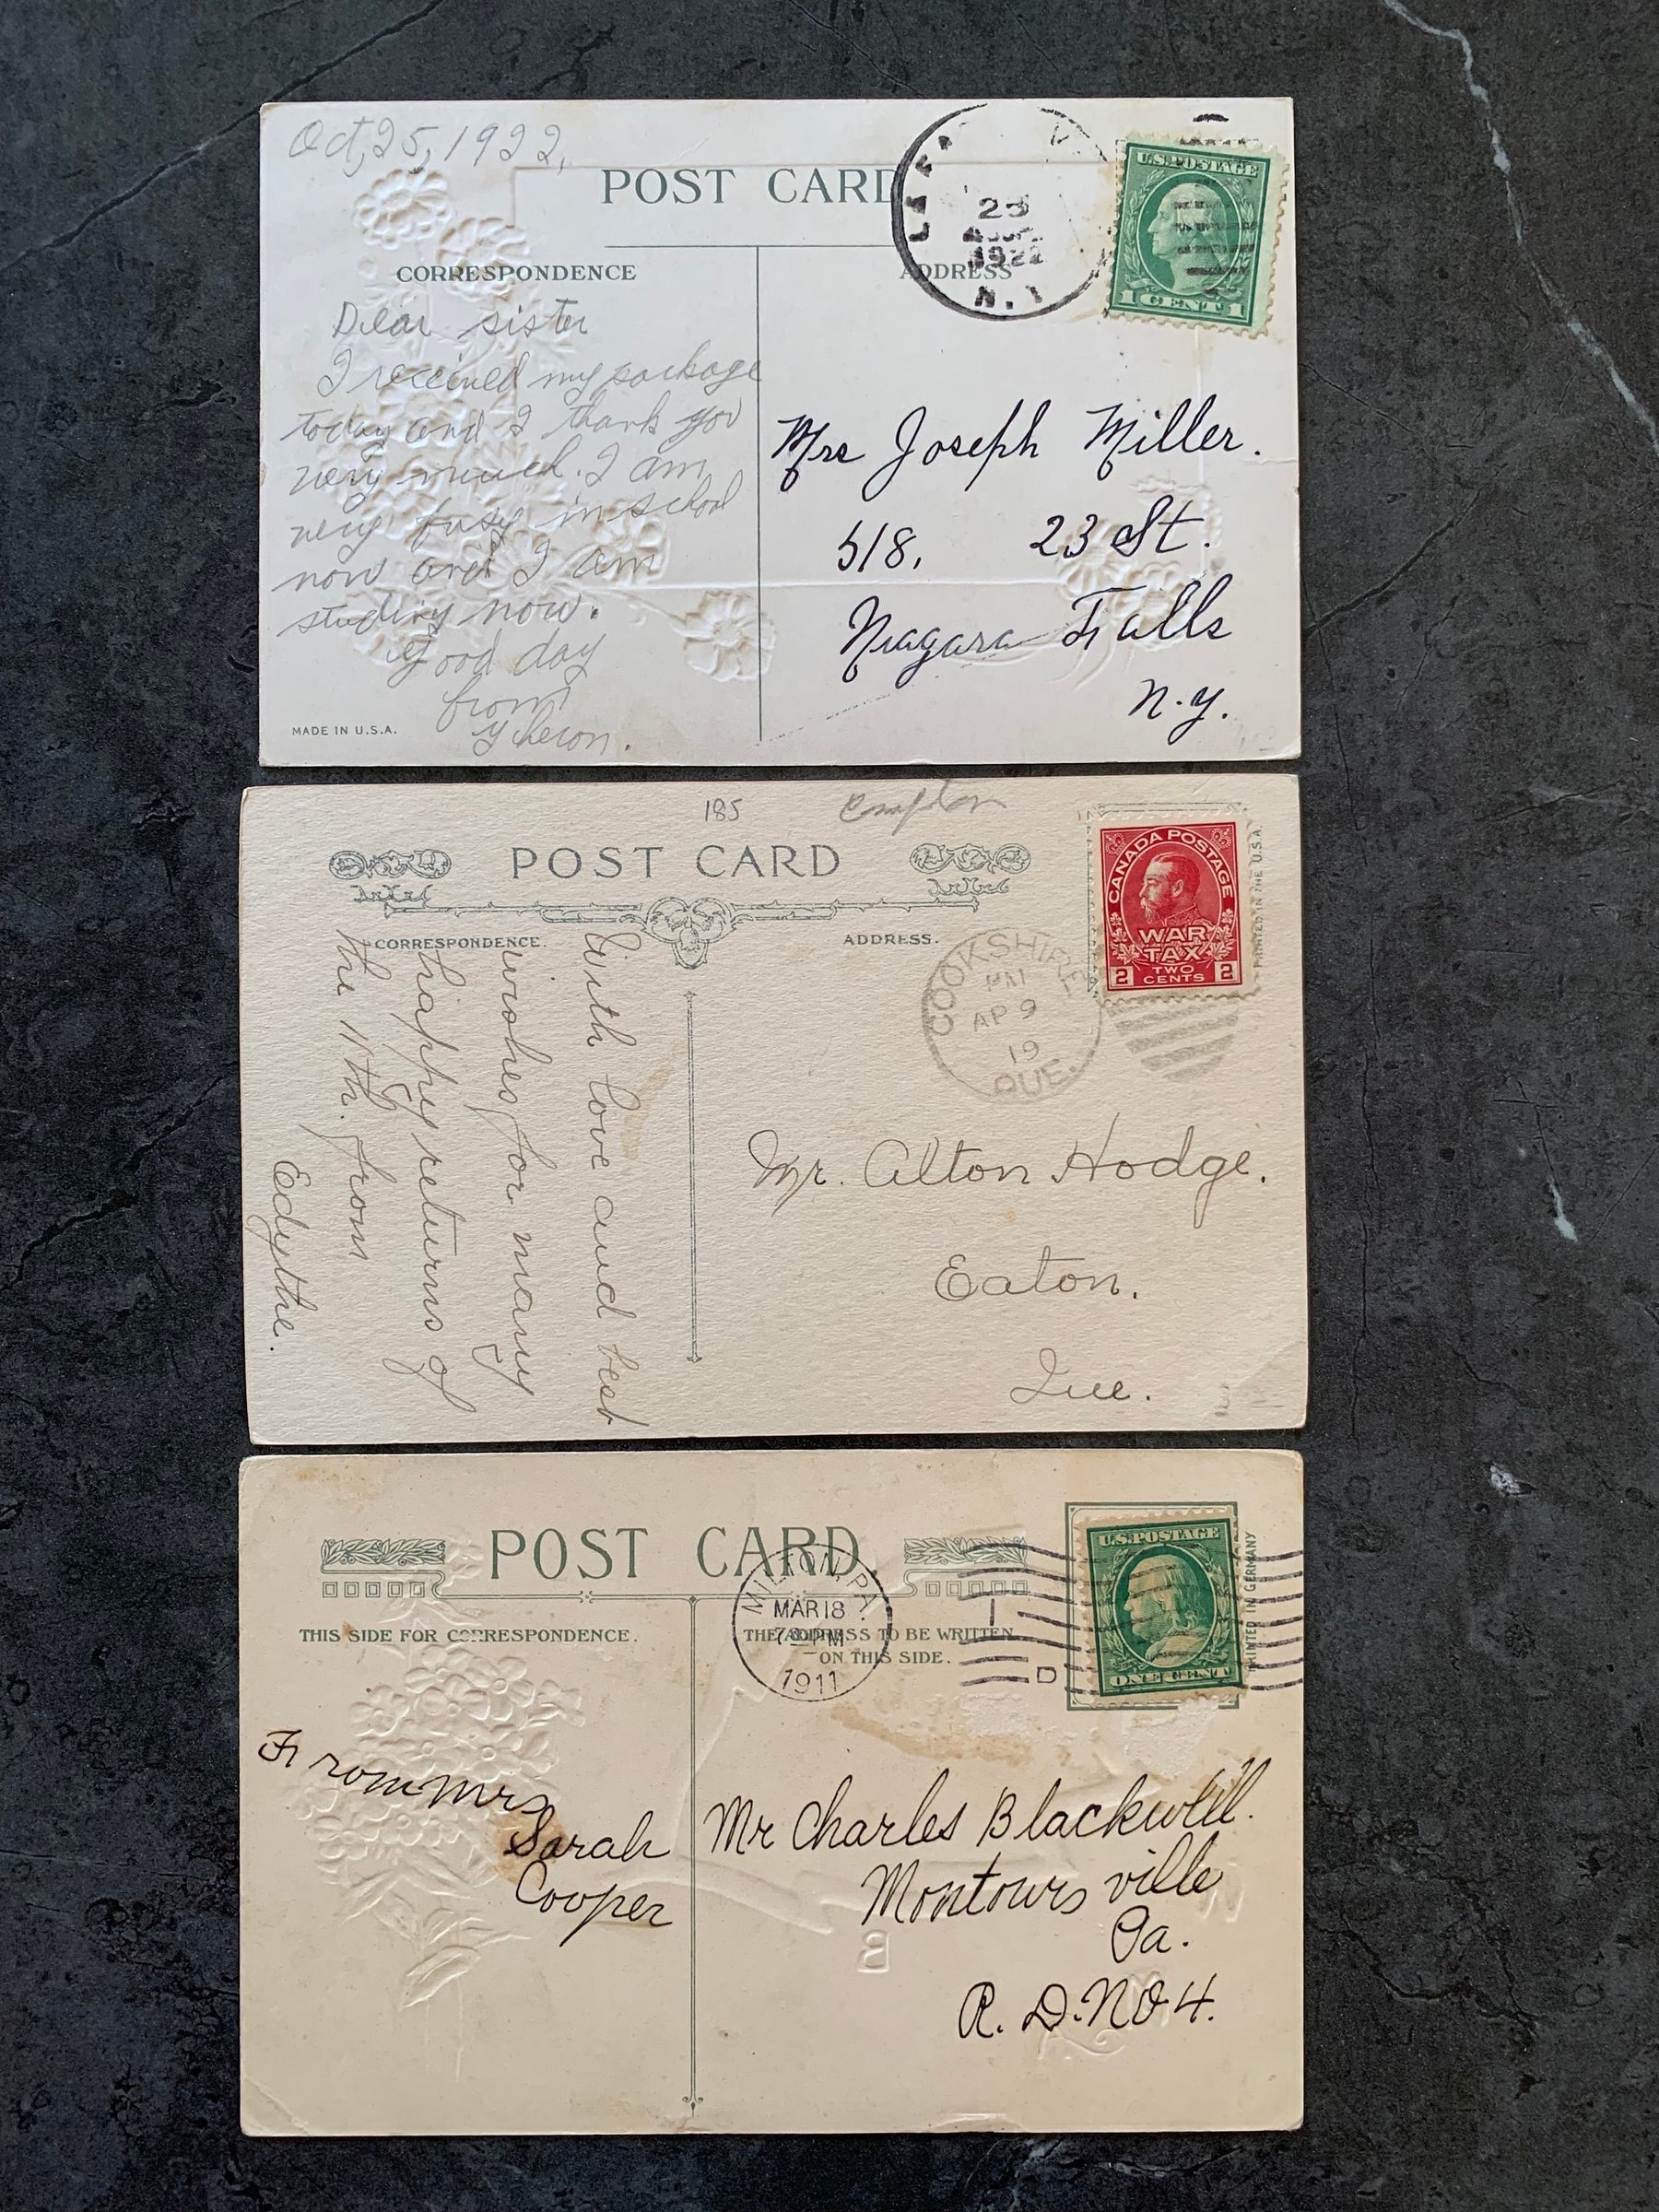 Oct, 25, 1922,
POST CARD
25
1922
N.Y
U.S. POSTAGE
1 CENT 1
CORRESPONDENCE
ADDRESS
Dear sister
I received my package
today and I thank you
very much. I am
very busy in school
now and I am
studing now.
Good day
from
Mrs Joseph Miller.
518, 23 St.
Niagara Falls
N.Y.
MADE IN U.S.A.
185
Compton
POST CARD
CORRESPONDENCE.
ADDRESS.
CANADA POSTAGE
WAR
TAX
2 TWO 2
CENTS
PRINTED IN THE U.S.A.
COOKSHIRE
PM
AP 9
19
QUE.
With love and best
wishes for many
happy returns of
the 11th. from
Edythe.
Mr. Alton Hodge.
Eaton.
Que.
POST CARD.
THIS SIDE FOR CORRESPONDENCE.
THE ADDRESS TO BE WRITTEN
ON THIS SIDE.
MILTON, PA.
MAR 18
PM
1911
1
D
U.S. POSTAGE
ONE CENT
PRINTED IN GERMANY
From Mrs
Sarah
Cooper
Mr Charles Blackwell.
Montours ville
Pa.
R. D. NO 4.